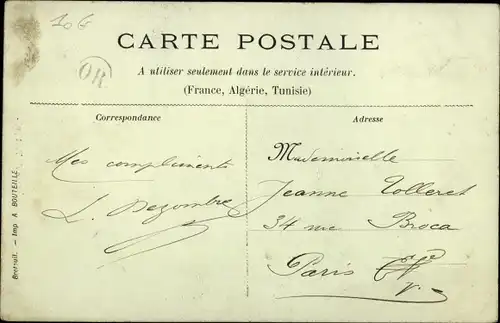 10 G
OR
CARTE POSTALE
A utiliser seulement dans le service intérieur.
(France, Algérie, Tunisie)
Correspondance
Adresse
Mes compliments
L. Dezombre
Mademoiselle
Jeanne Tolleret
34 rue Broca
Paris
Breteuil. — Imp A. BOUTEILLE.